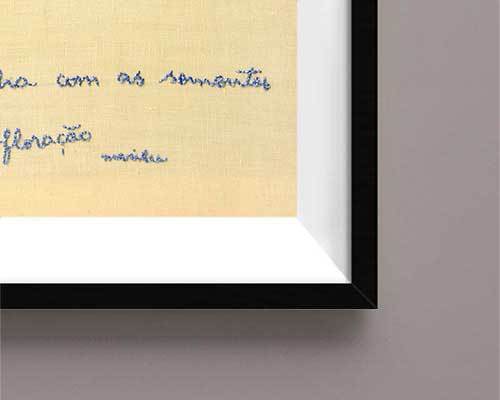 ha com as sementes
floração
marilia